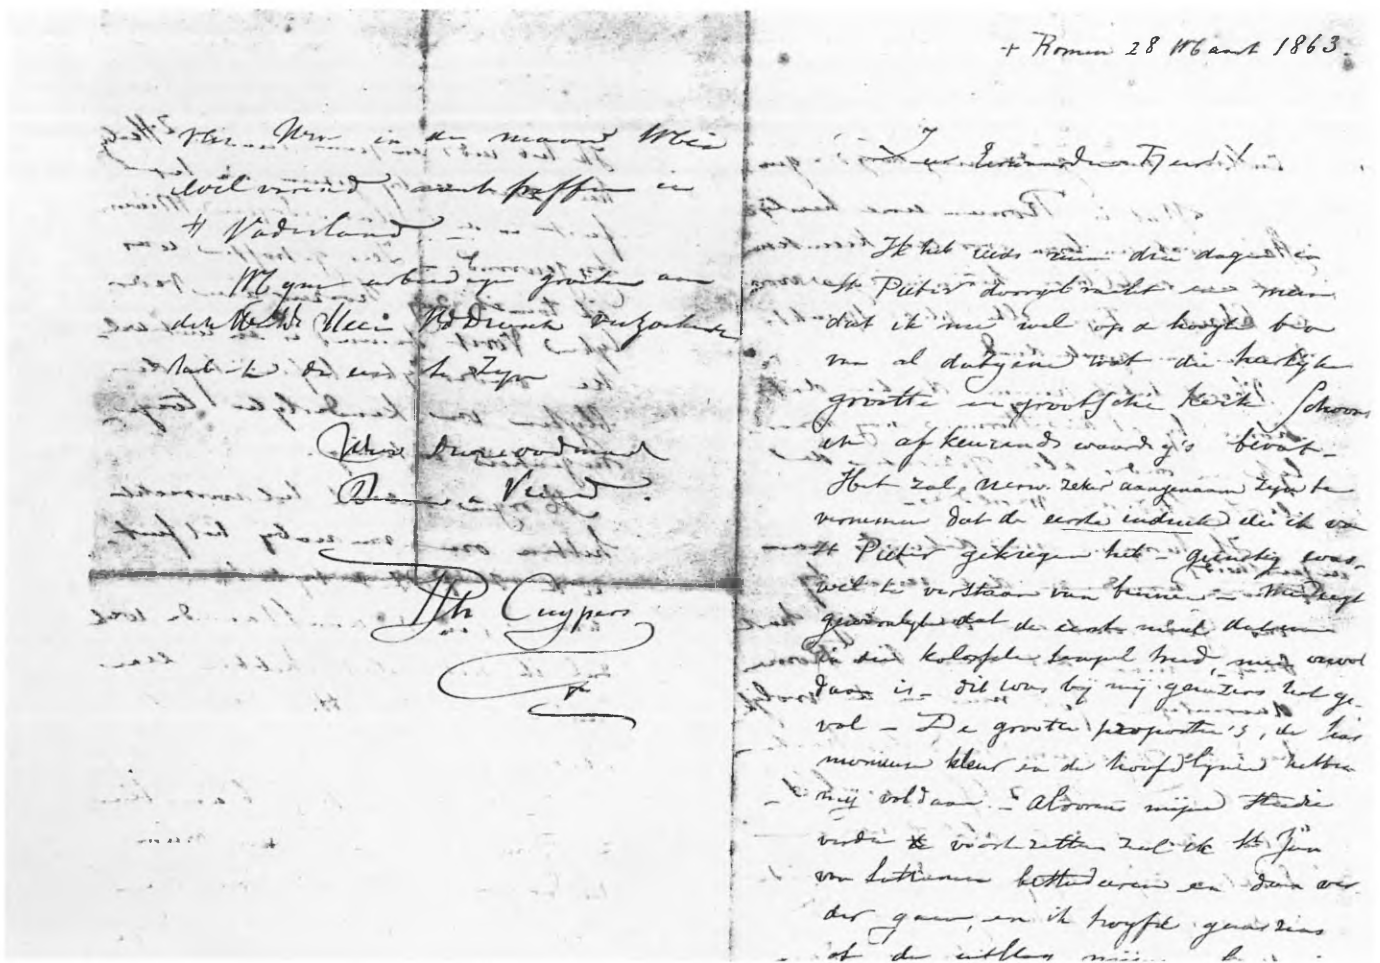 + Romen 28 Maart 1863.
Zeer Eerwaarde Heer
Ik heb reeds ruim drie dagen in
St Pieter doorgebracht en meen
dat ik nu wel op de hoogte ben
van al datgene wat die heerlijke
grootte en grootsche kerk Schoons
en afkeurenswaardigs bevat –
Het zal UEerw. zeker aangenaam zijn te
vernemen dat de eerste indruk die ik van
St Pieter gekregen heb – gunstig was,
wel te verstaan van binnen –
gewoonlijk dat de eerste maal dat men
in die kolossale tempel treed, men onvol
daan is – dit was bij mij geenzins het ge-
val – De groote proportie's, de har
monieuse kleur en de hoofdlijnen hebben
mij voldaan – alvorens mijne studie
verder te voortzetten zal ik St Jan
van Lateranen bestuderen en dan ver
der gaan, en ik twyfel geenzins
of de uitslag mijner
van Urw in de maand Mei
wel vriend aentetreffen in
't Vaderland
Myne eerbiedige groeten aan
verzoekende
heb ik de eer te zyn
Uwe dienvoodmoed
Dienaar en Vriend.
PJH Cuypers